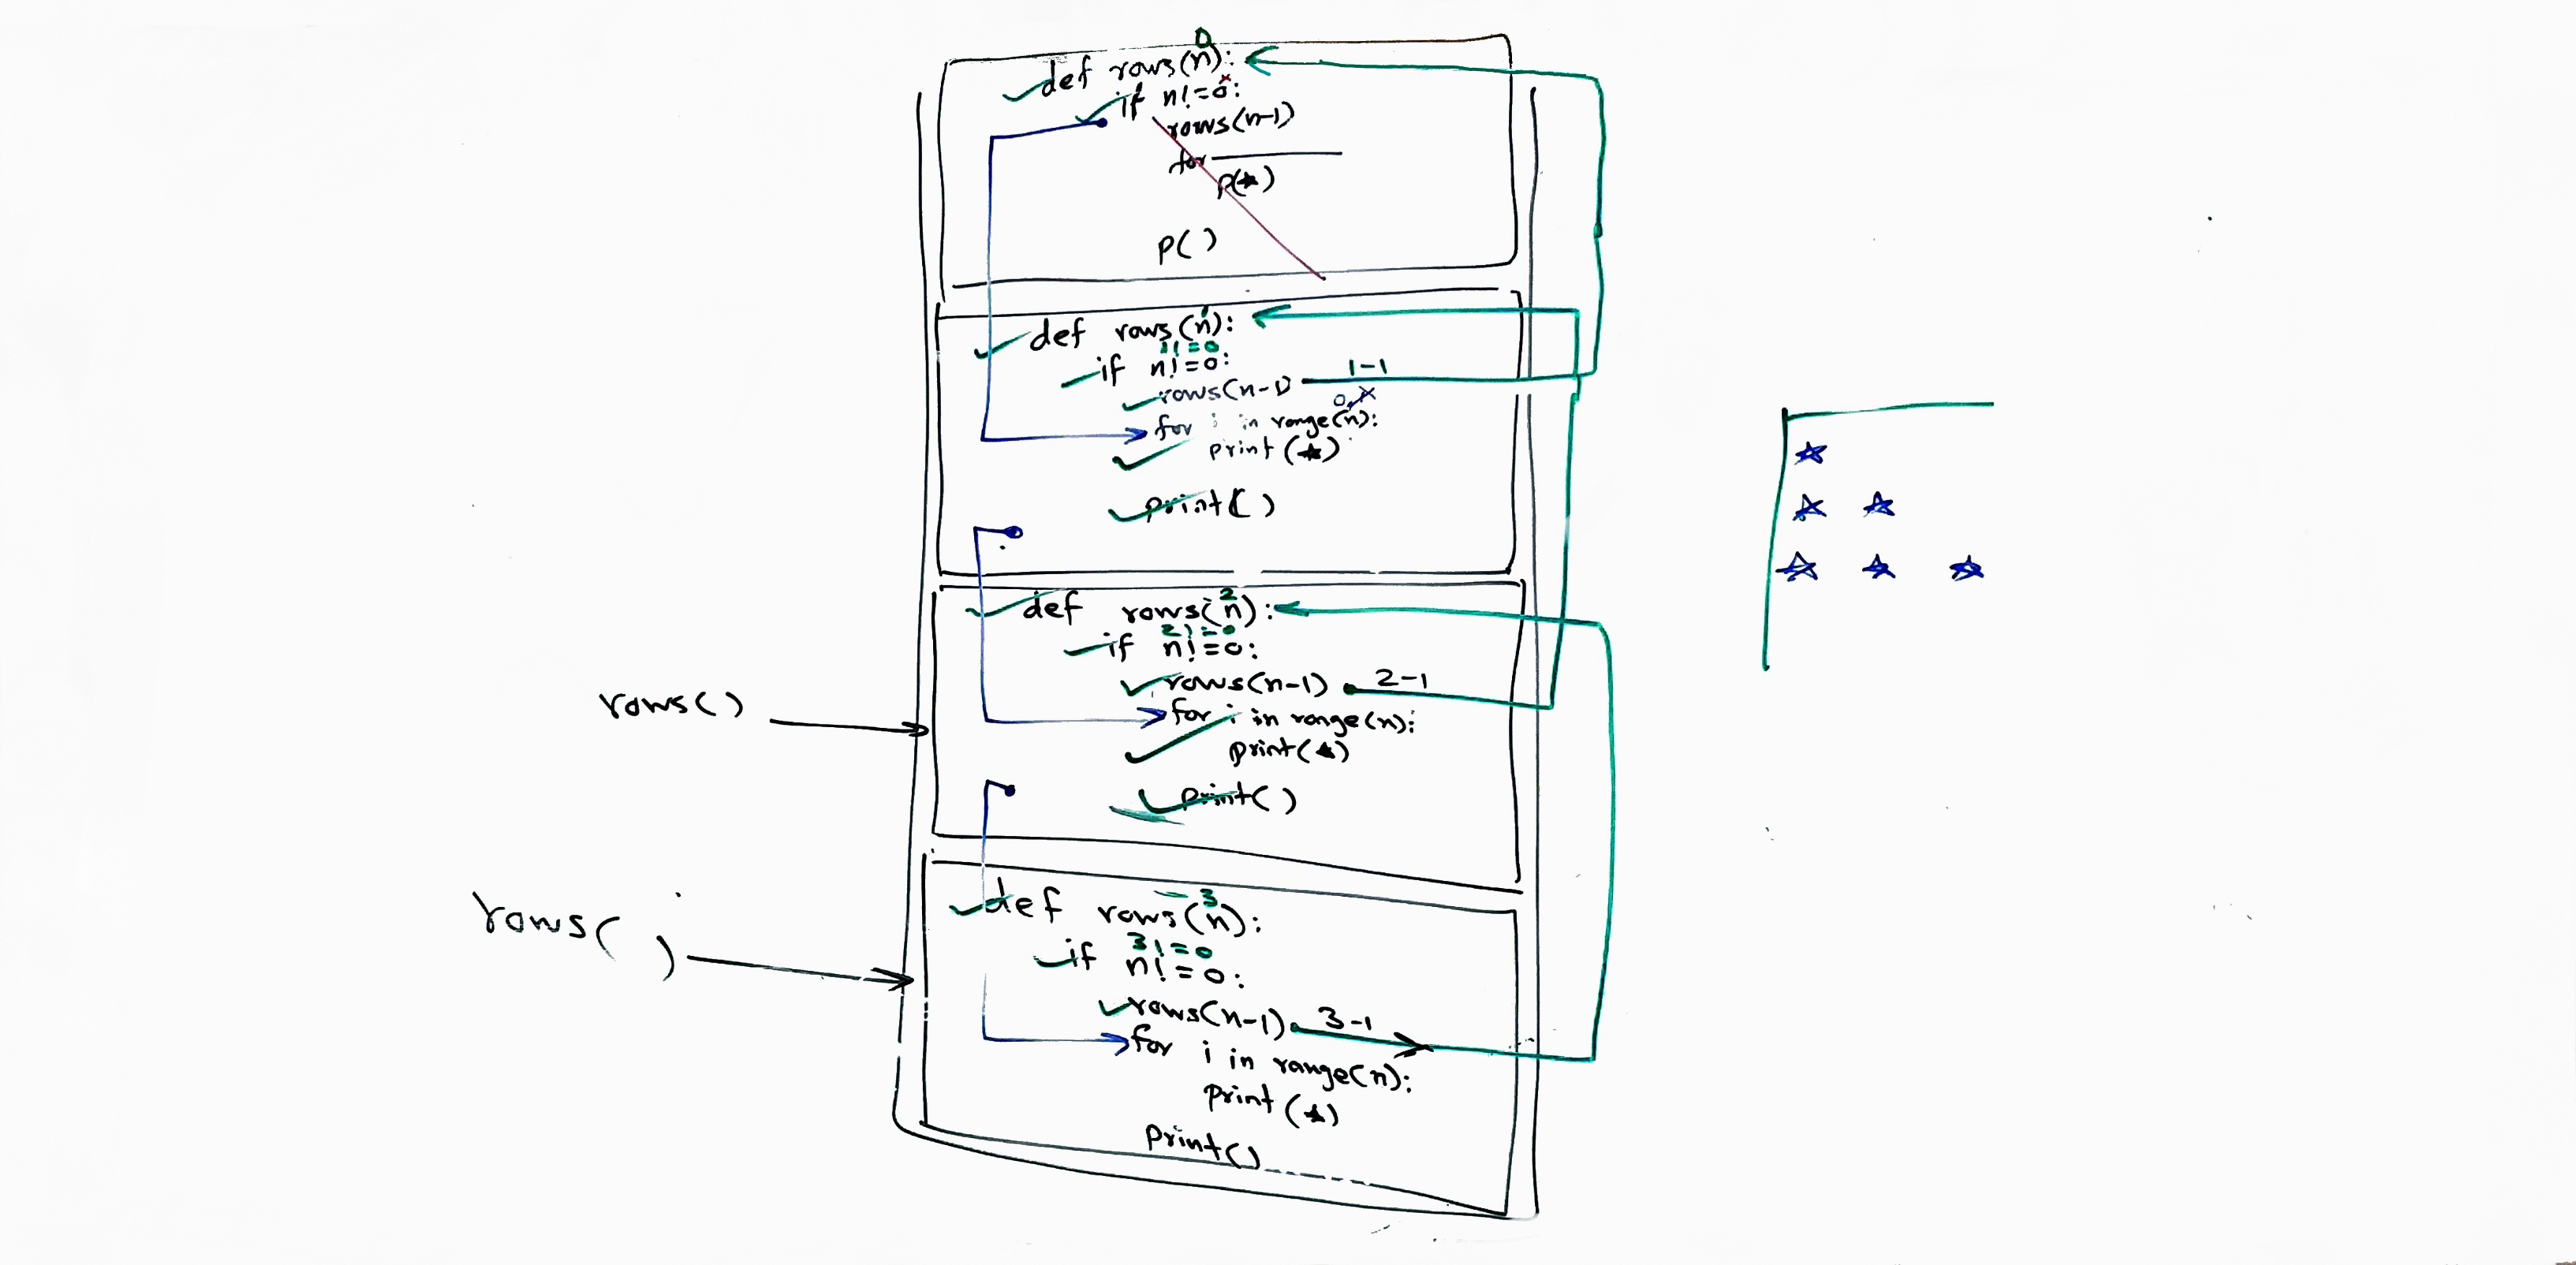 0
def rows(n):
if n!=0:
rows(n-1)
for
p(★)
p()
1
def rows(n):
1!=0
if n!=0:
rows(n-1) 1-1
0,1
for i in range(n):
print(★)
print()
2
def rows(n):
2!=0
if n!=0:
rows(n-1) 2-1
for i in range(n):
print(★)
print()
3
def rows(n):
3!=0
if n!=0:
rows(n-1) 3-1
for i in range(n):
print(★)
print()
rows()
rows( )
★
★ ★
★ ★ ★